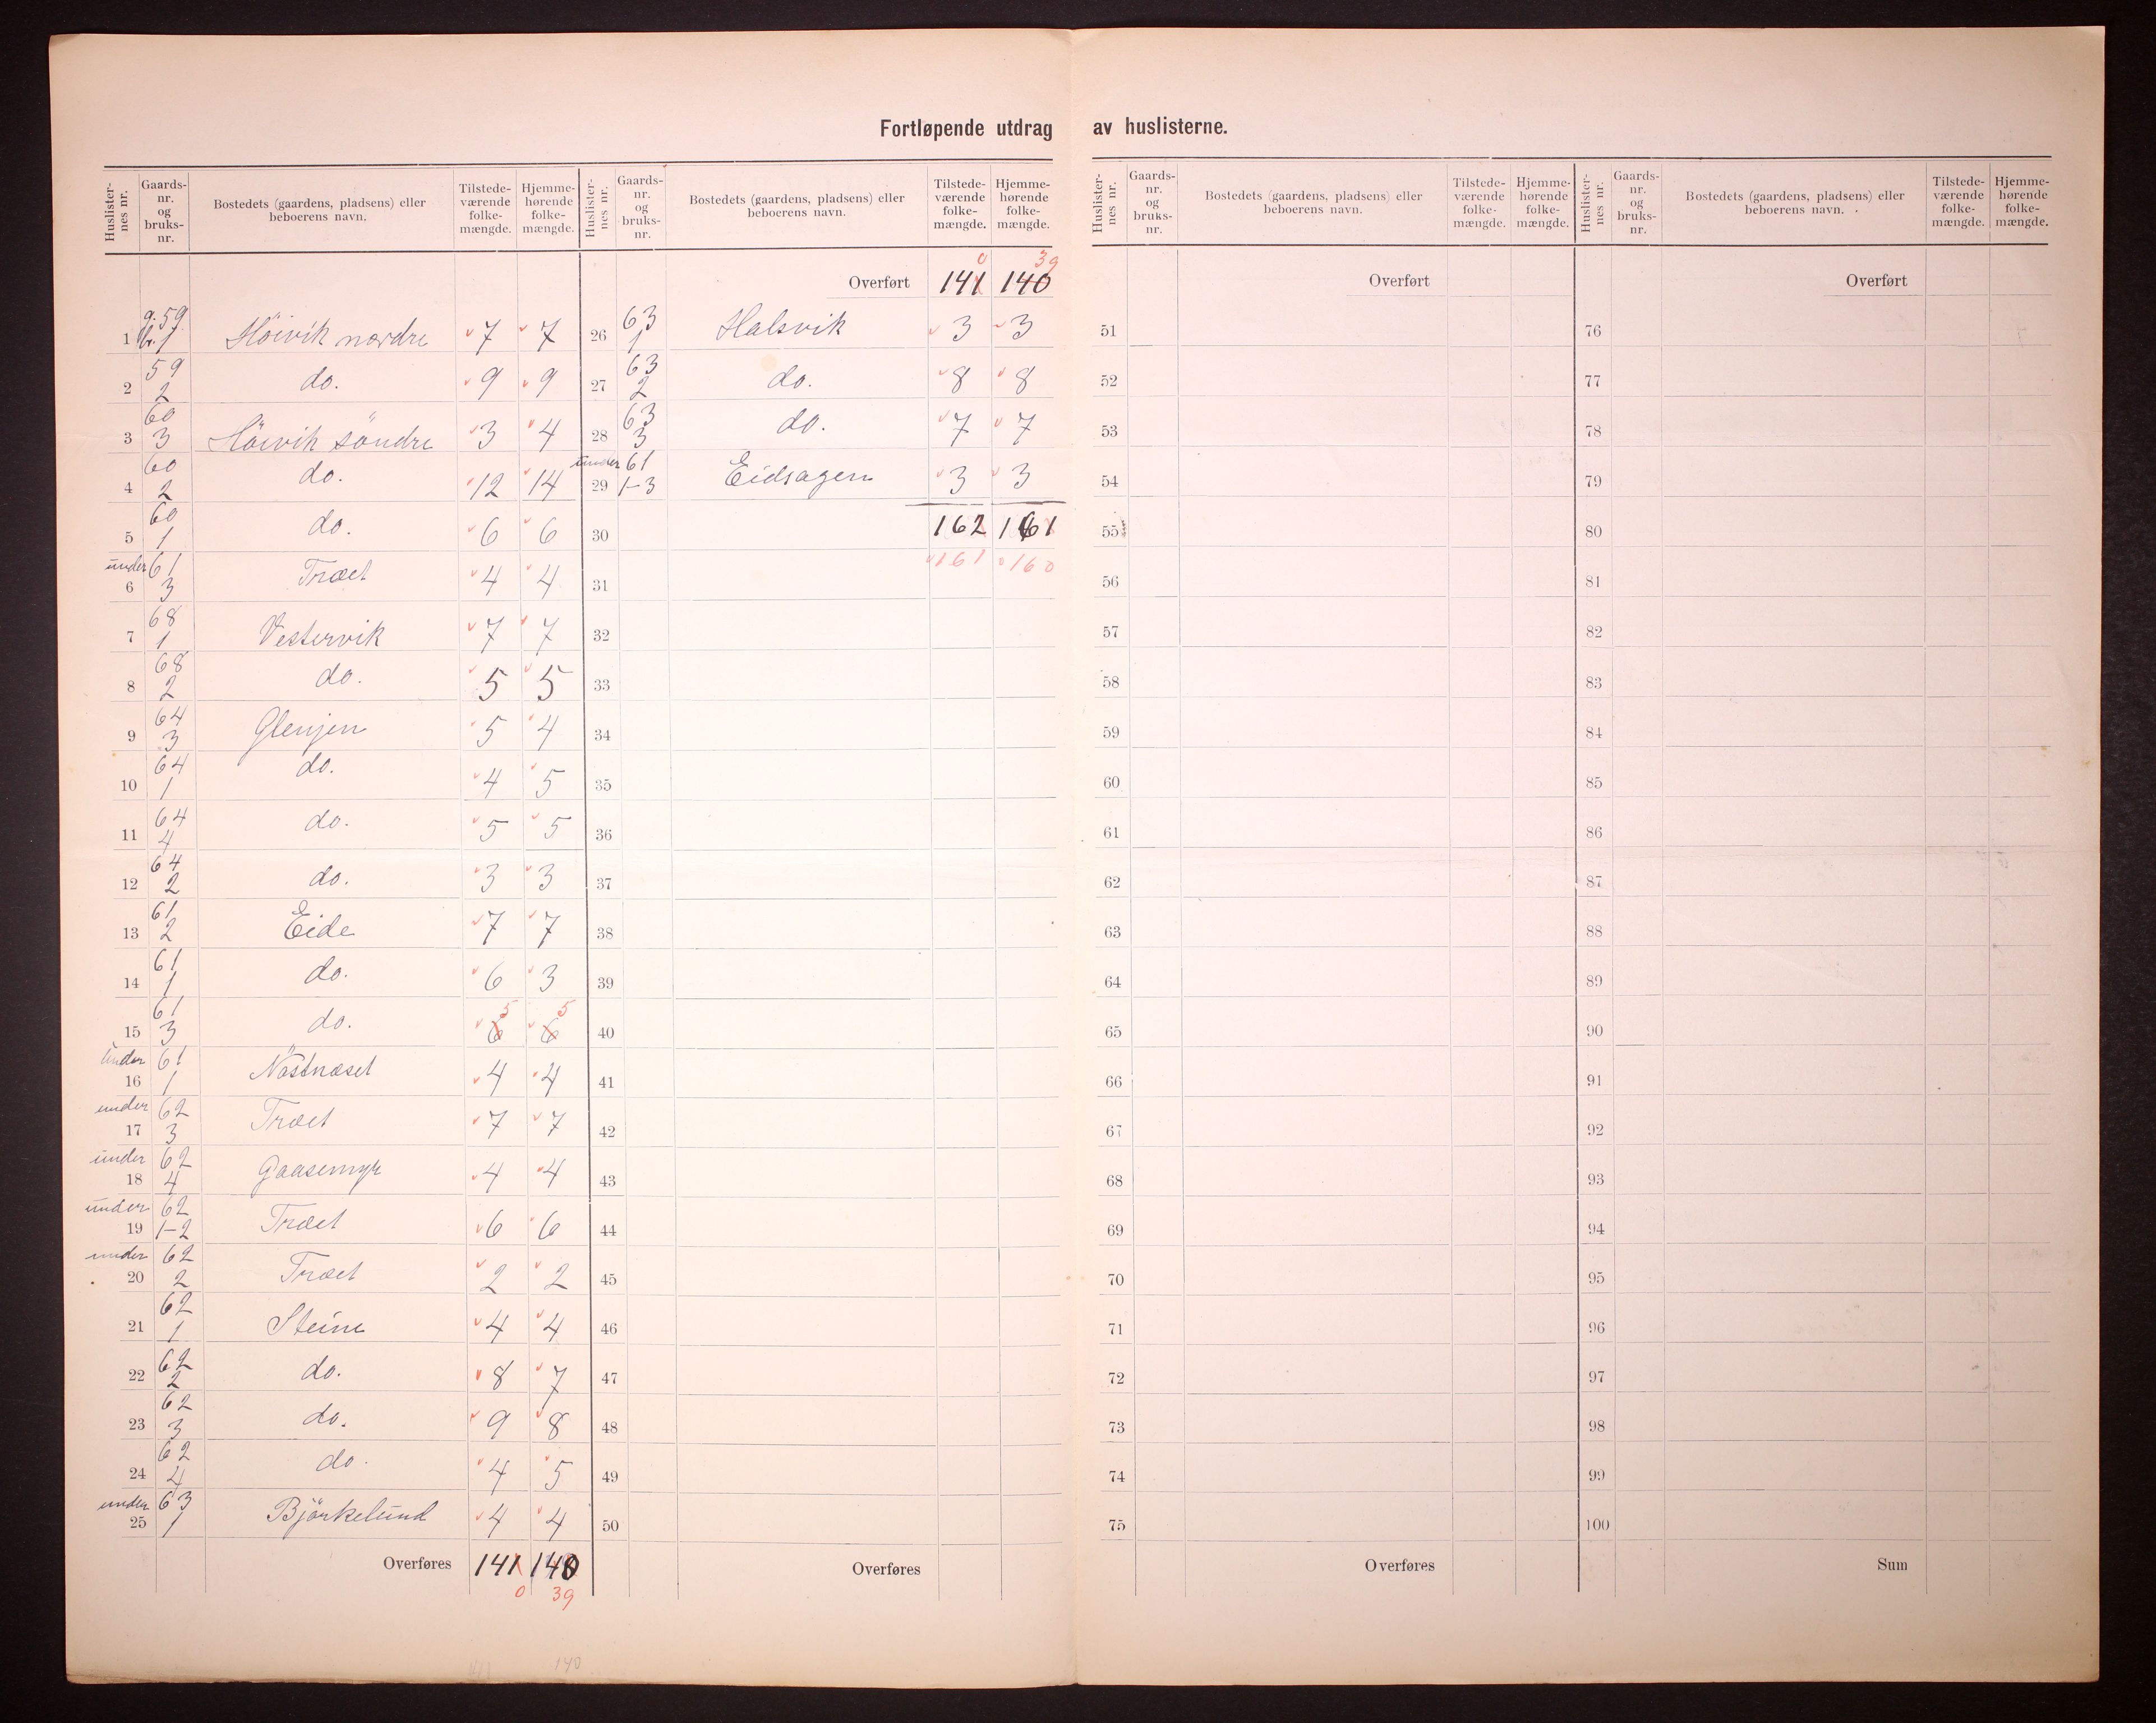 Fortløpende utdrag av huslisterne.
Huslister-nes nr. | Gaards-nr. og bruks-nr. | Bostedets (gaardens, pladsens) eller beboerens navn. | Tilstede-værende folke-mængde. | Hjemme-hørende folke-mængde.
1 | g. 59 br. 1 | Höivik nordre | 7 | 7
2 | 59 2 | do. | 9 | 9
3 | 60 3 | Höivik söndre | 3 | 4
4 | 60 2 | do. | 12 | 14
5 | 60 1 | do. | 6 | 6
6 | under 61 3 | Træet | 4 | 4
7 | 68 1 | Vestervik | 7 | 7
8 | 68 2 | do. | 5 | 5
9 | 64 3 | Glenjen | 5 | 4
10 | 64 1 | do. | 4 | 5
11 | 64 4 | do. | 5 | 5
12 | 64 2 | do. | 3 | 3
13 | 61 2 | Eide | 7 | 7
14 | 61 1 | do. | 6 | 3
15 | 61 3 | do. | 6 5 | 6 5
16 | under 61 1 | Nöstnæset | 4 | 4
17 | under 62 3 | Træet | 7 | 7
18 | under 62 4 | Gaasemyr | 4 | 4
19 | under 62 1-2 | Træet | 6 | 6
20 | under 62 2 | Træet | 2 | 2
21 | 62 1 | Steine | 4 | 4
22 | 62 2 | do. | 8 | 7
23 | 62 3 | do. | 9 | 8
24 | 62 4 | do. | 4 | 5
25 | under 63 1 | Björkelund | 4 | 4
Overføres | 141 | 140
0 | 39
141 140
Huslister-nes nr. | Gaards-nr. og bruks-nr. | Bostedets (gaardens, pladsens) eller beboerens navn. | Tilstede-værende folke-mængde. | Hjemme-hørende folke-mængde.
0 | 39
Overført | 141 | 140
26 | 63 1 | Halsvik | 3 | 3
27 | 63 2 | do. | 8 | 8
28 | 63 3 | do. | 7 | 7
29 | under 61 1-3 | Eidsagen | 3 | 3
30 | 162 | 161
161 | 160
31
32
33
34
35
36
37
38
39
40
41
42
43
44
45
46
47
48
49
50
Overføres
Huslister-nes nr. | Gaards-nr. og bruks-nr. | Bostedets (gaardens, pladsens) eller beboerens navn. | Tilstede-værende folke-mængde. | Hjemme-hørende folke-mængde.
Overført
51
52
53
54
55
56
57
58
59
60
61
62
63
64
65
66
67
68
69
70
71
72
73
74
75
Overføres
Huslister-nes nr. | Gaards-nr. og bruks-nr. | Bostedets (gaardens, pladsens) eller beboerens navn. | Tilstede-værende folke-mængde. | Hjemme-hørende folke-mængde.
Overført
76
77
78
79
80
81
82
83
84
85
86
87
88
89
90
91
92
93
94
95
96
97
98
99
100
Sum